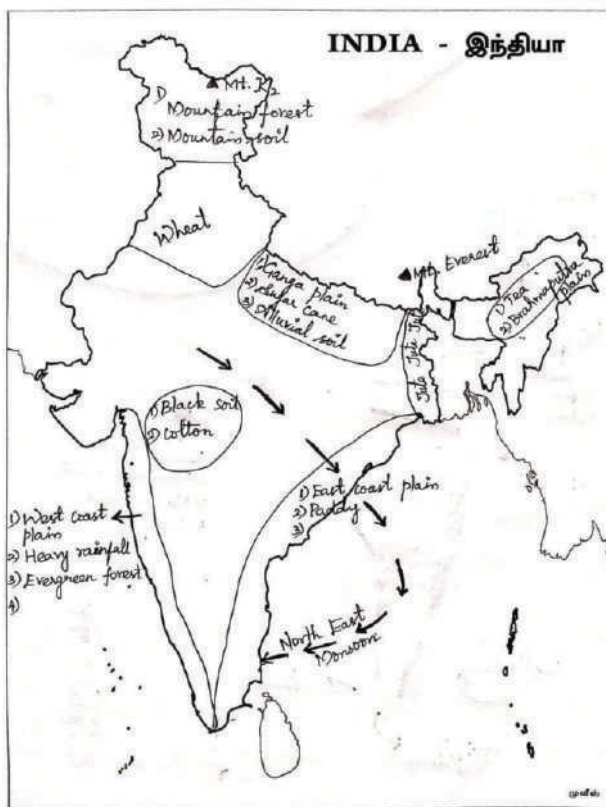 INDIA - இந்தியா
Mt. K2
1)
Mountain forest
2) Mountain soil
Wheat
Mt. Everest
1) Ganga plain
2) Sugar cane
3) Alluvial soil
Jute Jute Jute
1) Tea
2) Brahmaputra
plain
1) Black soil
2) Cotton
1) East coast plain
2) Paddy
3)
1) West coast
plain
2) Heavy rainfall
3) Evergreen forest
4)
North East
Monsoon